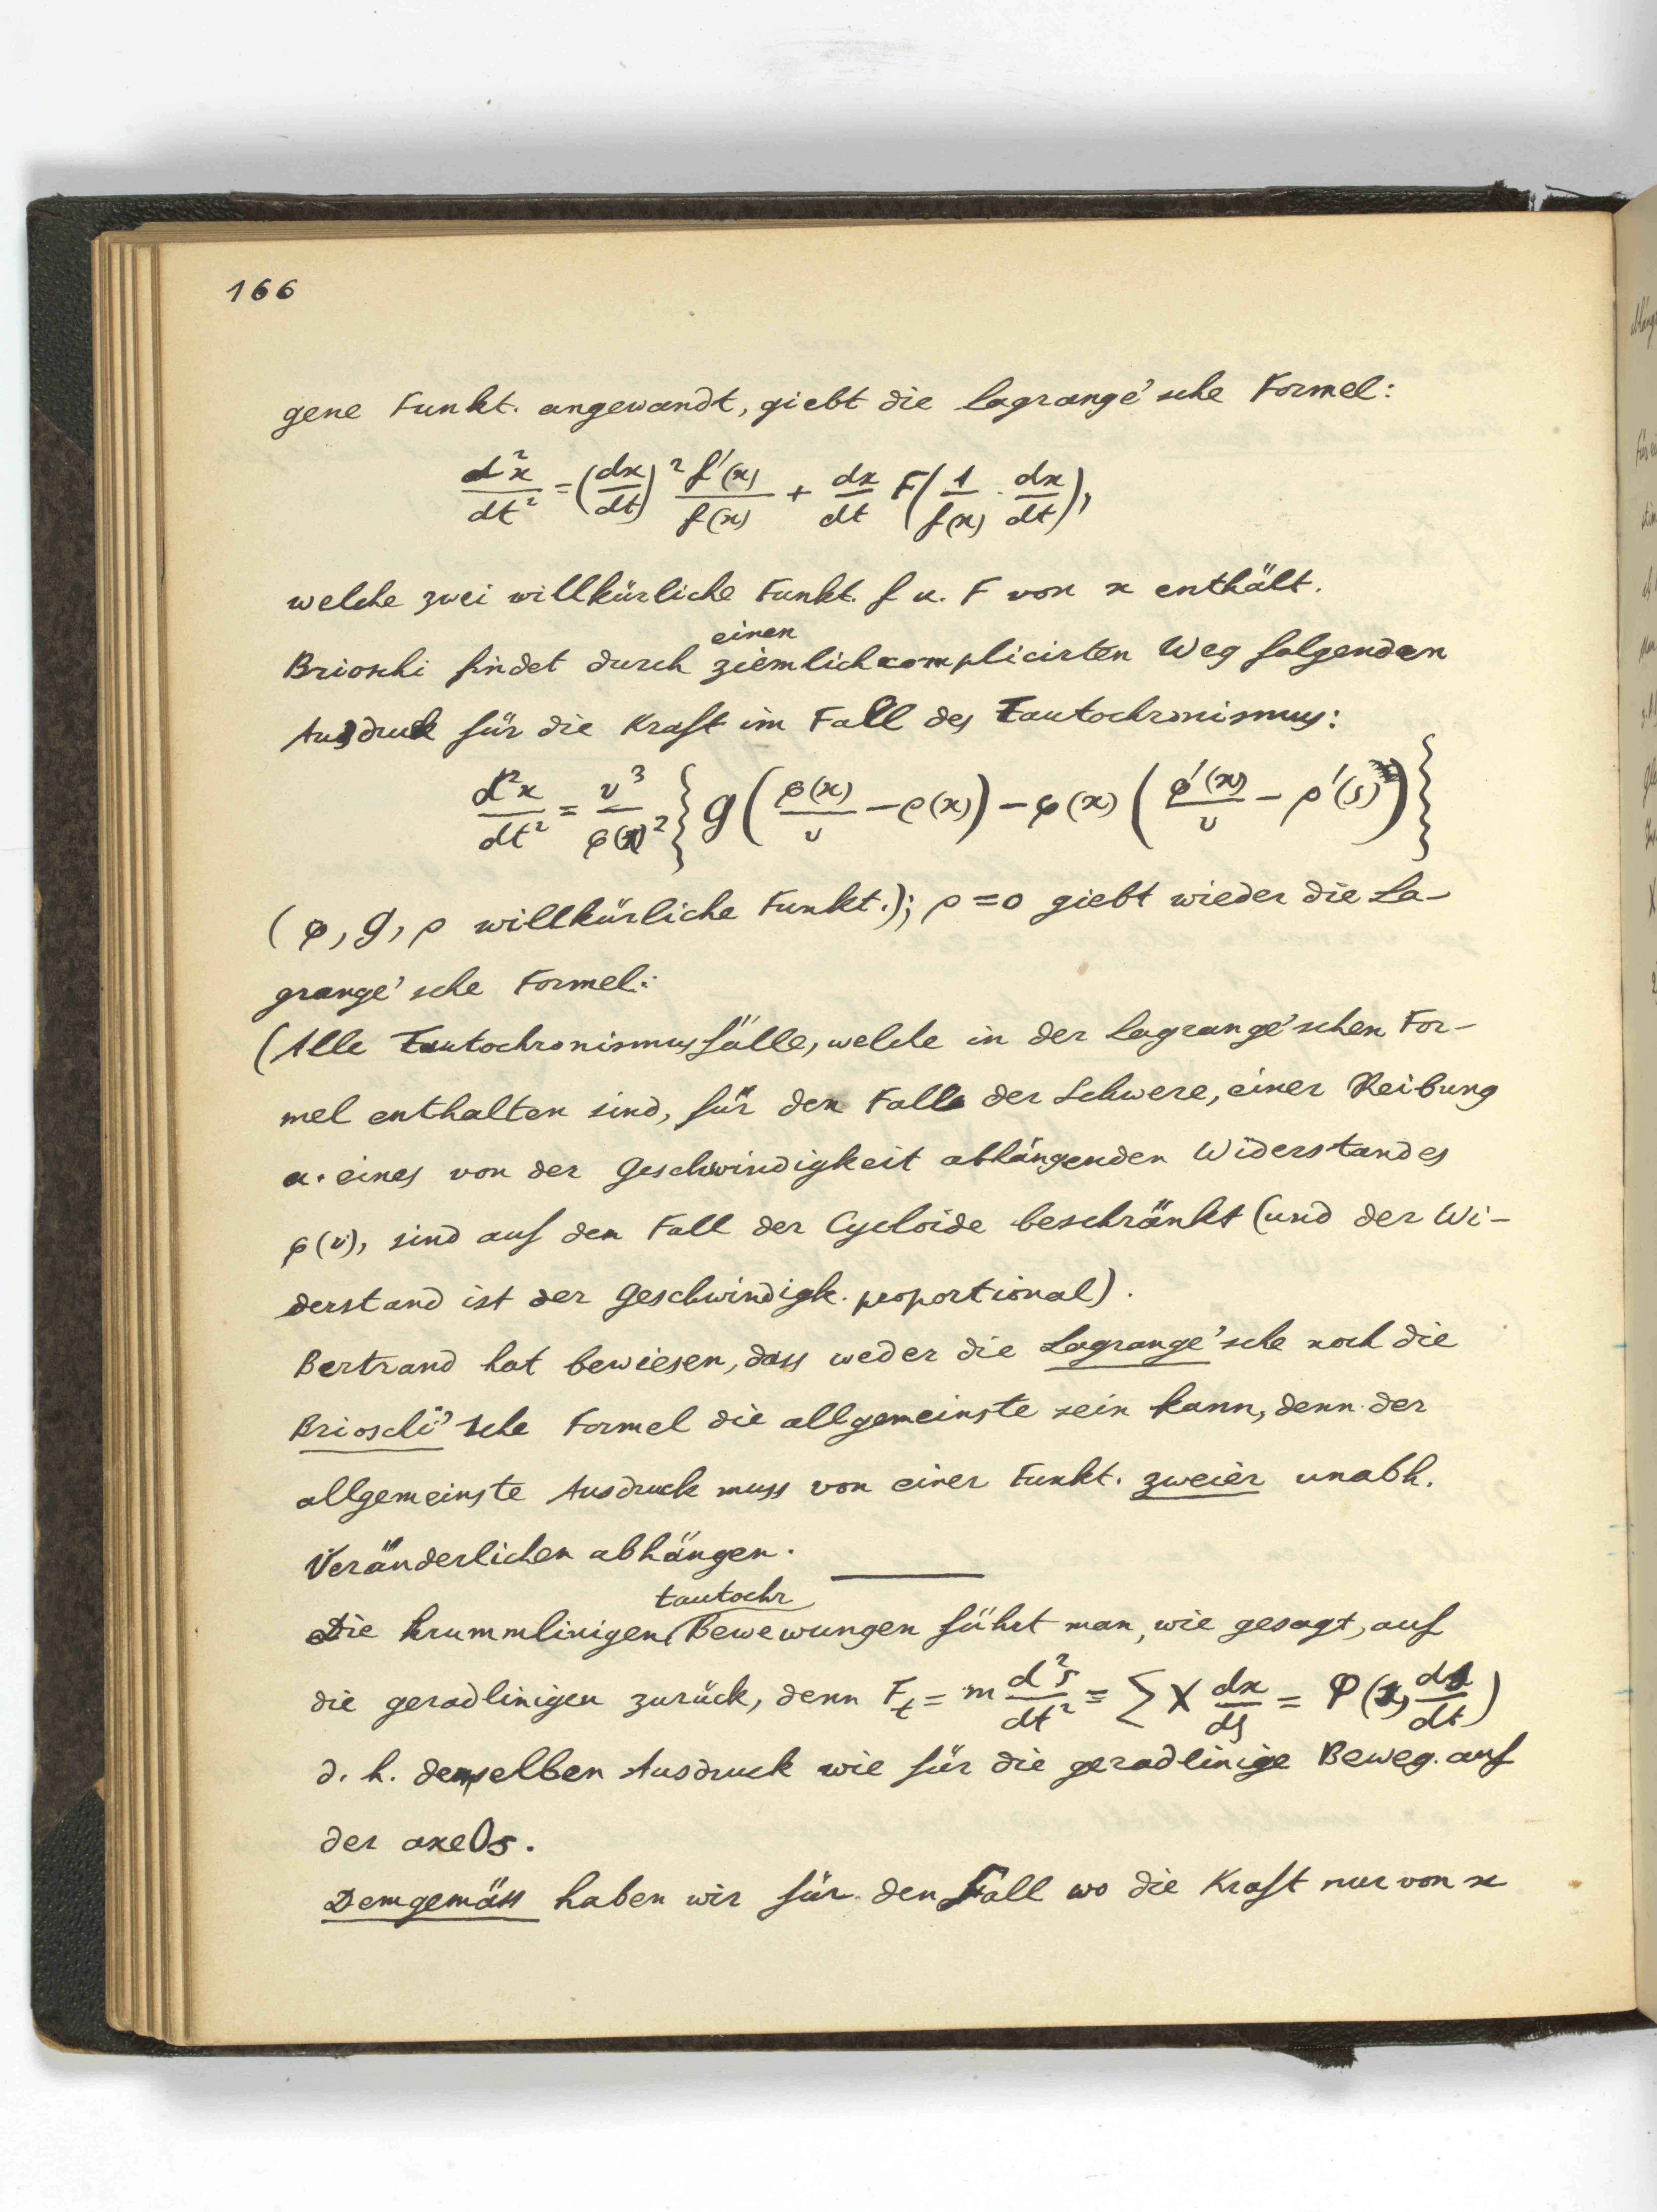 166
gene Funkt. angewandt, giebt die Lagrange'sche Formel:
d²x/dt² = (dx/dt)² f'(x)/f(x) + dx/dt F(1/f(x) · dx/dt),
welche zwei willkürliche Funkt. f u. F von x enthält.
einen
Brioschi findet durch ziemlich complicirten Weg folgenden
Ausdruck für die Kraft im Fall des Tautochronismus:
d²x/dt² = v³/φ(x)² { g(φ(x)/v − ρ(x)) − φ(x) (φ'(x)/v − ρ'(s)) }
(φ, g, ρ willkürliche Funkt.); ρ = 0 giebt wieder die La-
grange'sche Formel:
(Alle Tautochronismusfälle, welche in der Lagrange'schen For-
mel enthalten sind, für den Fall der Schwere, einer Reibung
u. eines von der Geschwindigkeit abhängenden Widerstandes
φ(v), sind auf den Fall der Cycloide beschränkt (und der Wi-
derstand ist der Geschwindigk. proportional).
Bertrand hat bewiesen, dass weder die Lagrange'sche noch die
Brioschi'sche Formel die allgemeinste sein kann, denn der
allgemeinste Ausdruck muss von einer Funkt. zweier unabh.
Veränderlichen abhängen.
tautochr
Die krummlinigen Bewewungen führt man, wie gesagt, auf
die geradlinigen zurück, denn F_t = m d²s/dt² = Σ X dx/ds = φ(s, ds/dt)
d. h. demselben Ausdruck wie für die geradlinige Beweg. auf
der axe Os.
Demgemäss haben wir für den Fall wo die Kraft nur von x